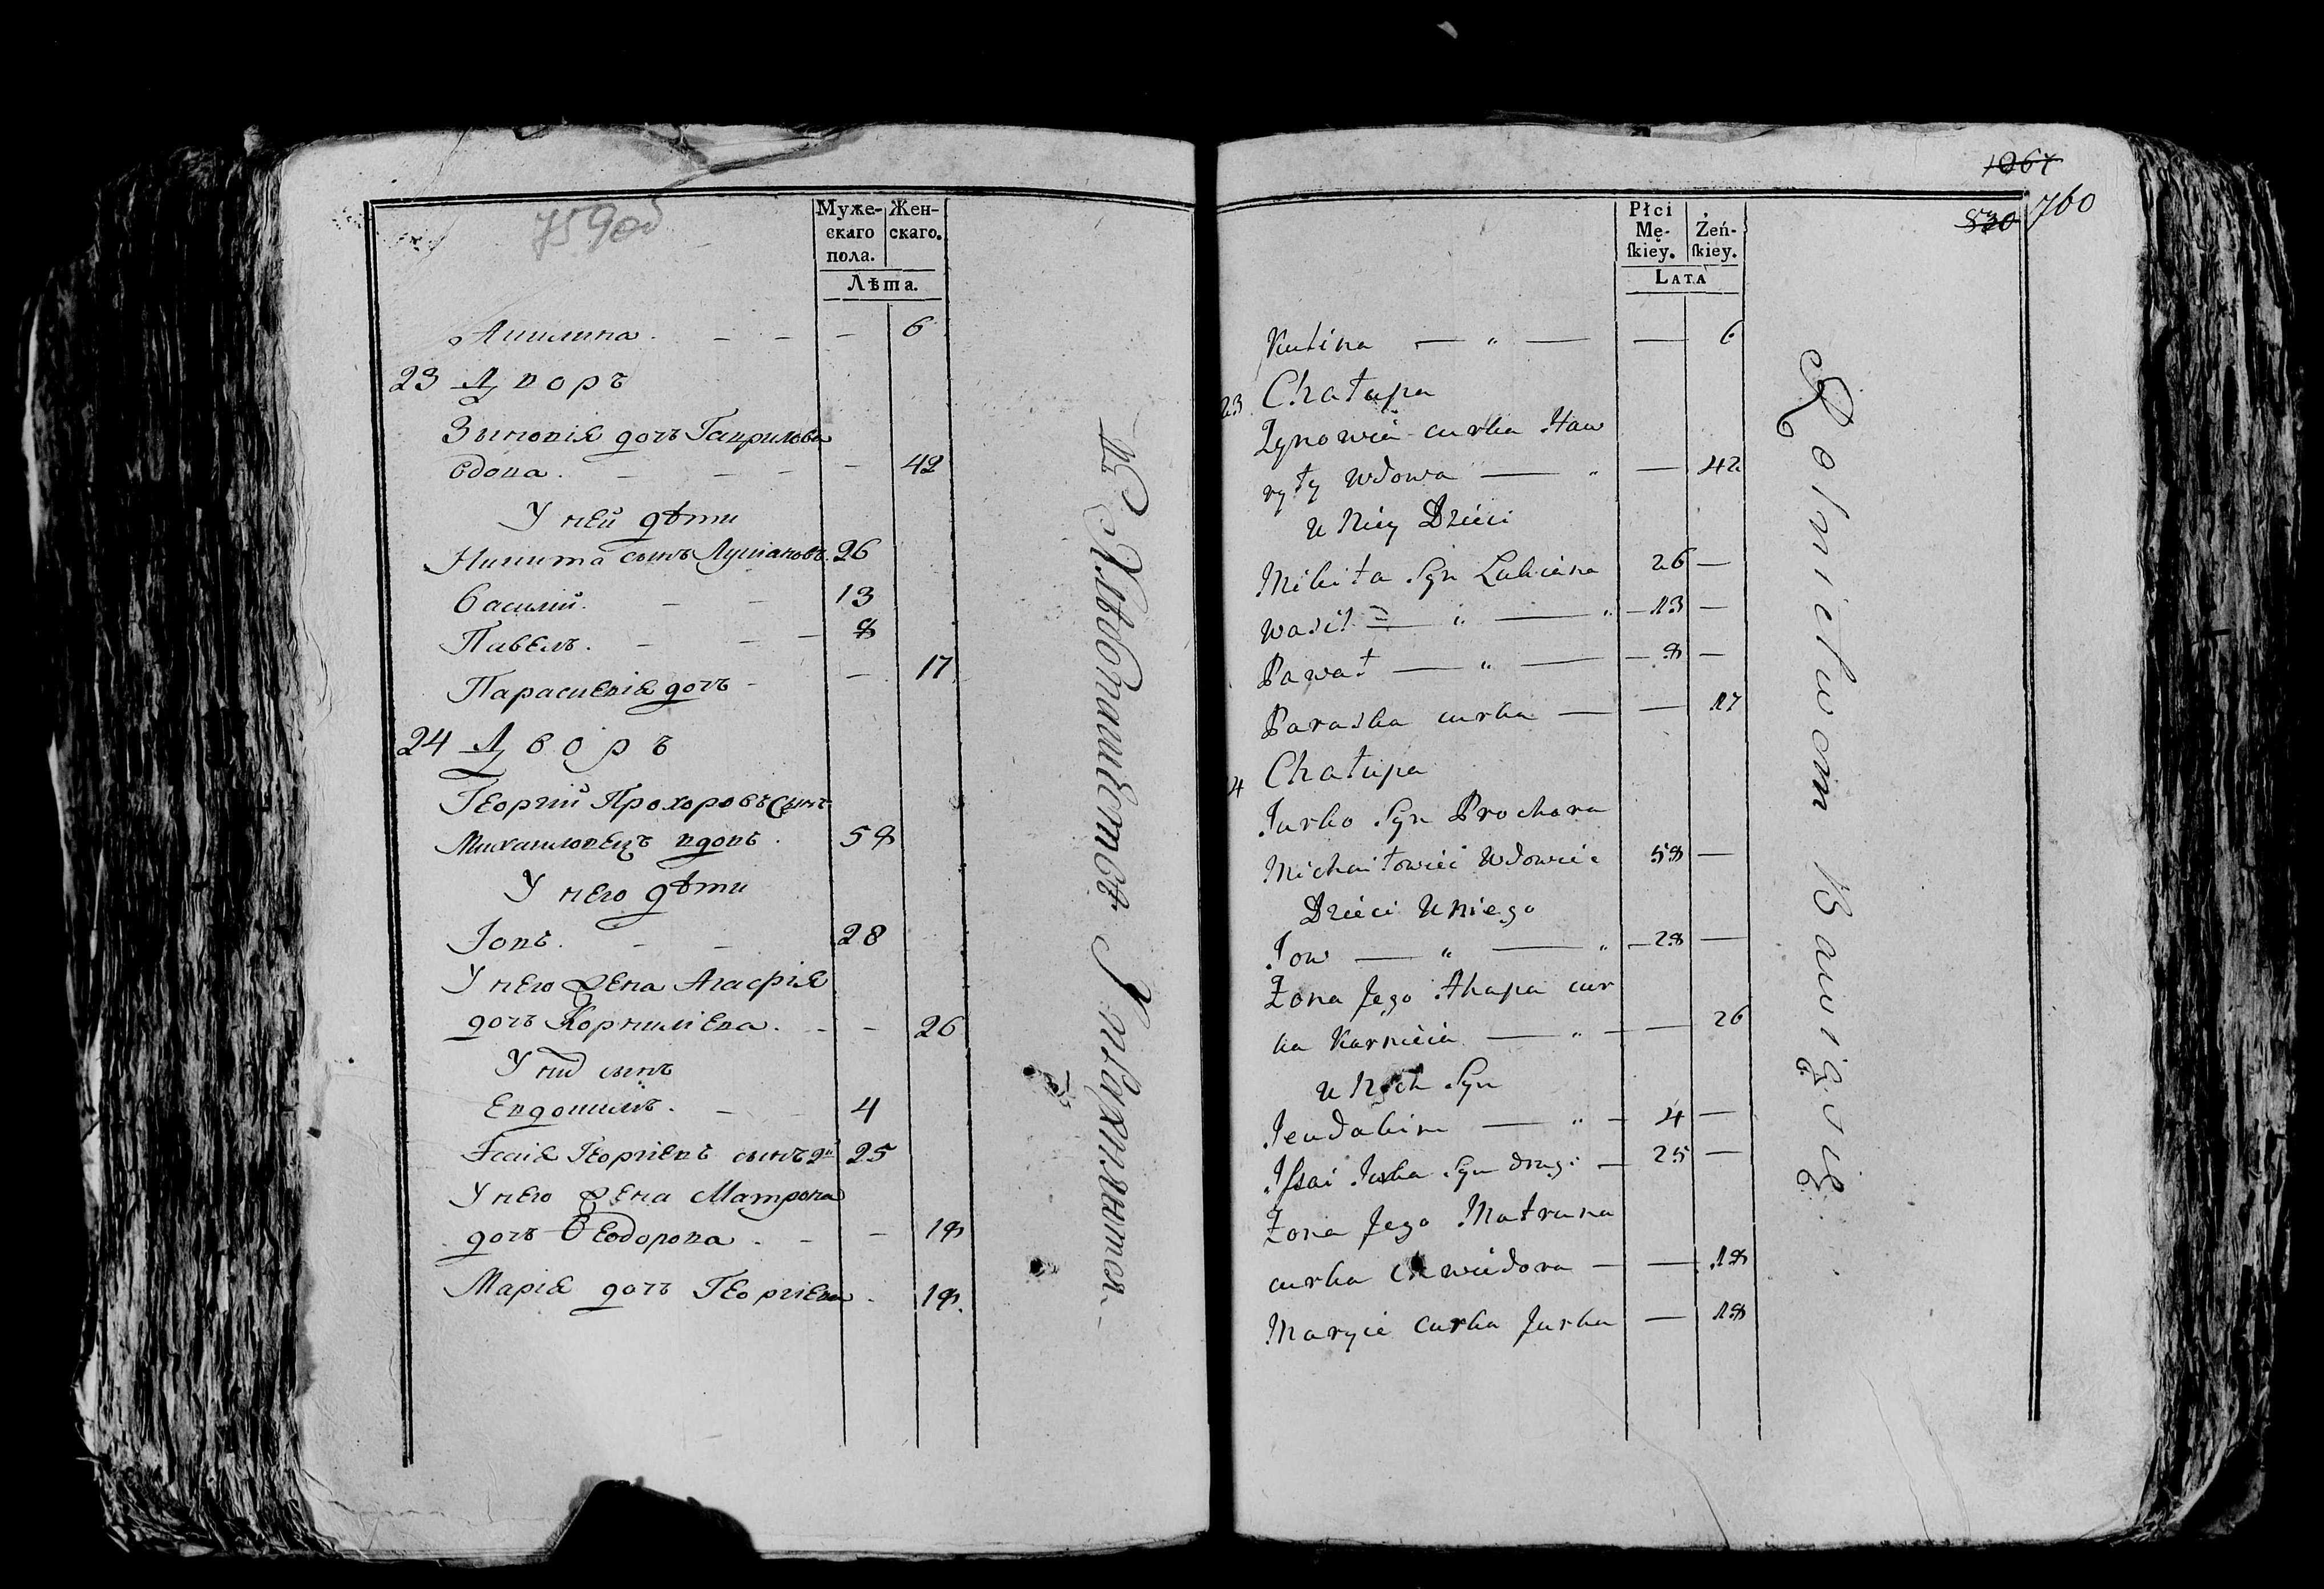 759 об
Муже-
скаго
пола.
Жен-
скаго.
Лѣта.
Акилина. — — — 6
23 Дворъ
Зѣновія дочь Гаврилова
вдова. — — — — 42
У ней дѣти
Никита сынъ Лукіановъ. 26
Василій. — — 13
Павелъ. — — — 8
Параскевія дочь - — 17
24 Дворъ
Георгій Прохоровъ сынъ
Михаиловецъ вдовъ. 58
У него дѣти
Іовъ. — — 28
У него жена Агафія
дочь Корниліева. - — 26
У нихъ сынъ
Евдокимъ. — 4
Ісаія Георгіевъ сынъ 2й 25
У него жена Матрона
дочь Ѳеодорова. - — 18
Марія дочь Георгіева. 18.
Въ Хлѣбопашествѣ
Упражняются.
1267
820
760
Płci
Mę-
ſkiey.
Żeń-
ſkiey.
LATA
Kulina — „ — — 6
23 Chałupa
Zynowia curka Haw
ryły Wdowa — „ — 42
u Niey Dzieci
Mikita Syn Lukiana 26 —
Wasil — „ — „ — 13 —
Paweł — „ — — 8 —
Paraska curka — — 17
4 Chałupa
Jurko Syn Prochora
Michaiłowiec Wdowiec 58 —
Dzieci U niego
Jow — „ — „ — 28 —
Żona Jego Ahapa cur
ka Karnieia — „ — — 26
u Nich Syn
Jeudakim — „ — 4 —
Jſsai Jurka Syn drugi — 25 —
Żona Jego Matruna
curka Chwiedora — — 18
Maryia Curka Jurka — 18
Rolnictwom Bawią się